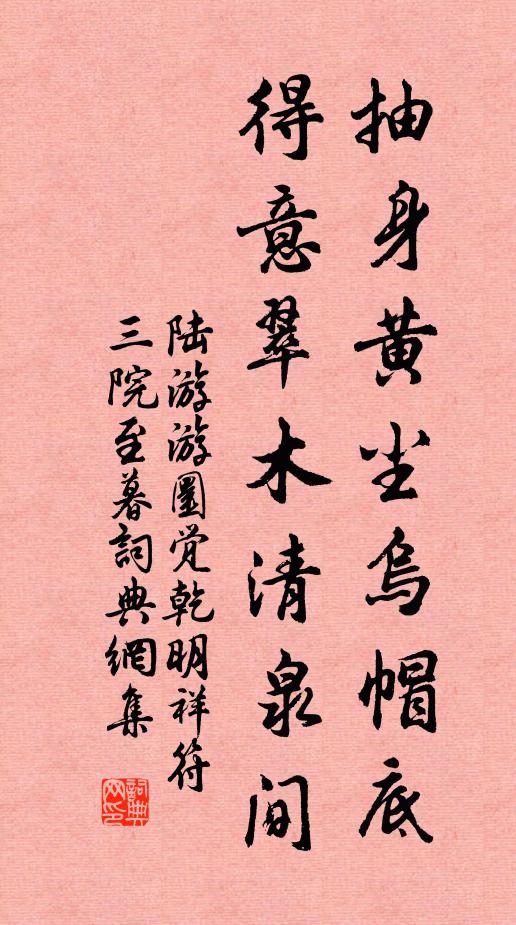 抽身黄尘乌帽底
得意翠木清泉间
陆游游圆觉乾明祥符
三院至暮詞典網集
詞典
网印